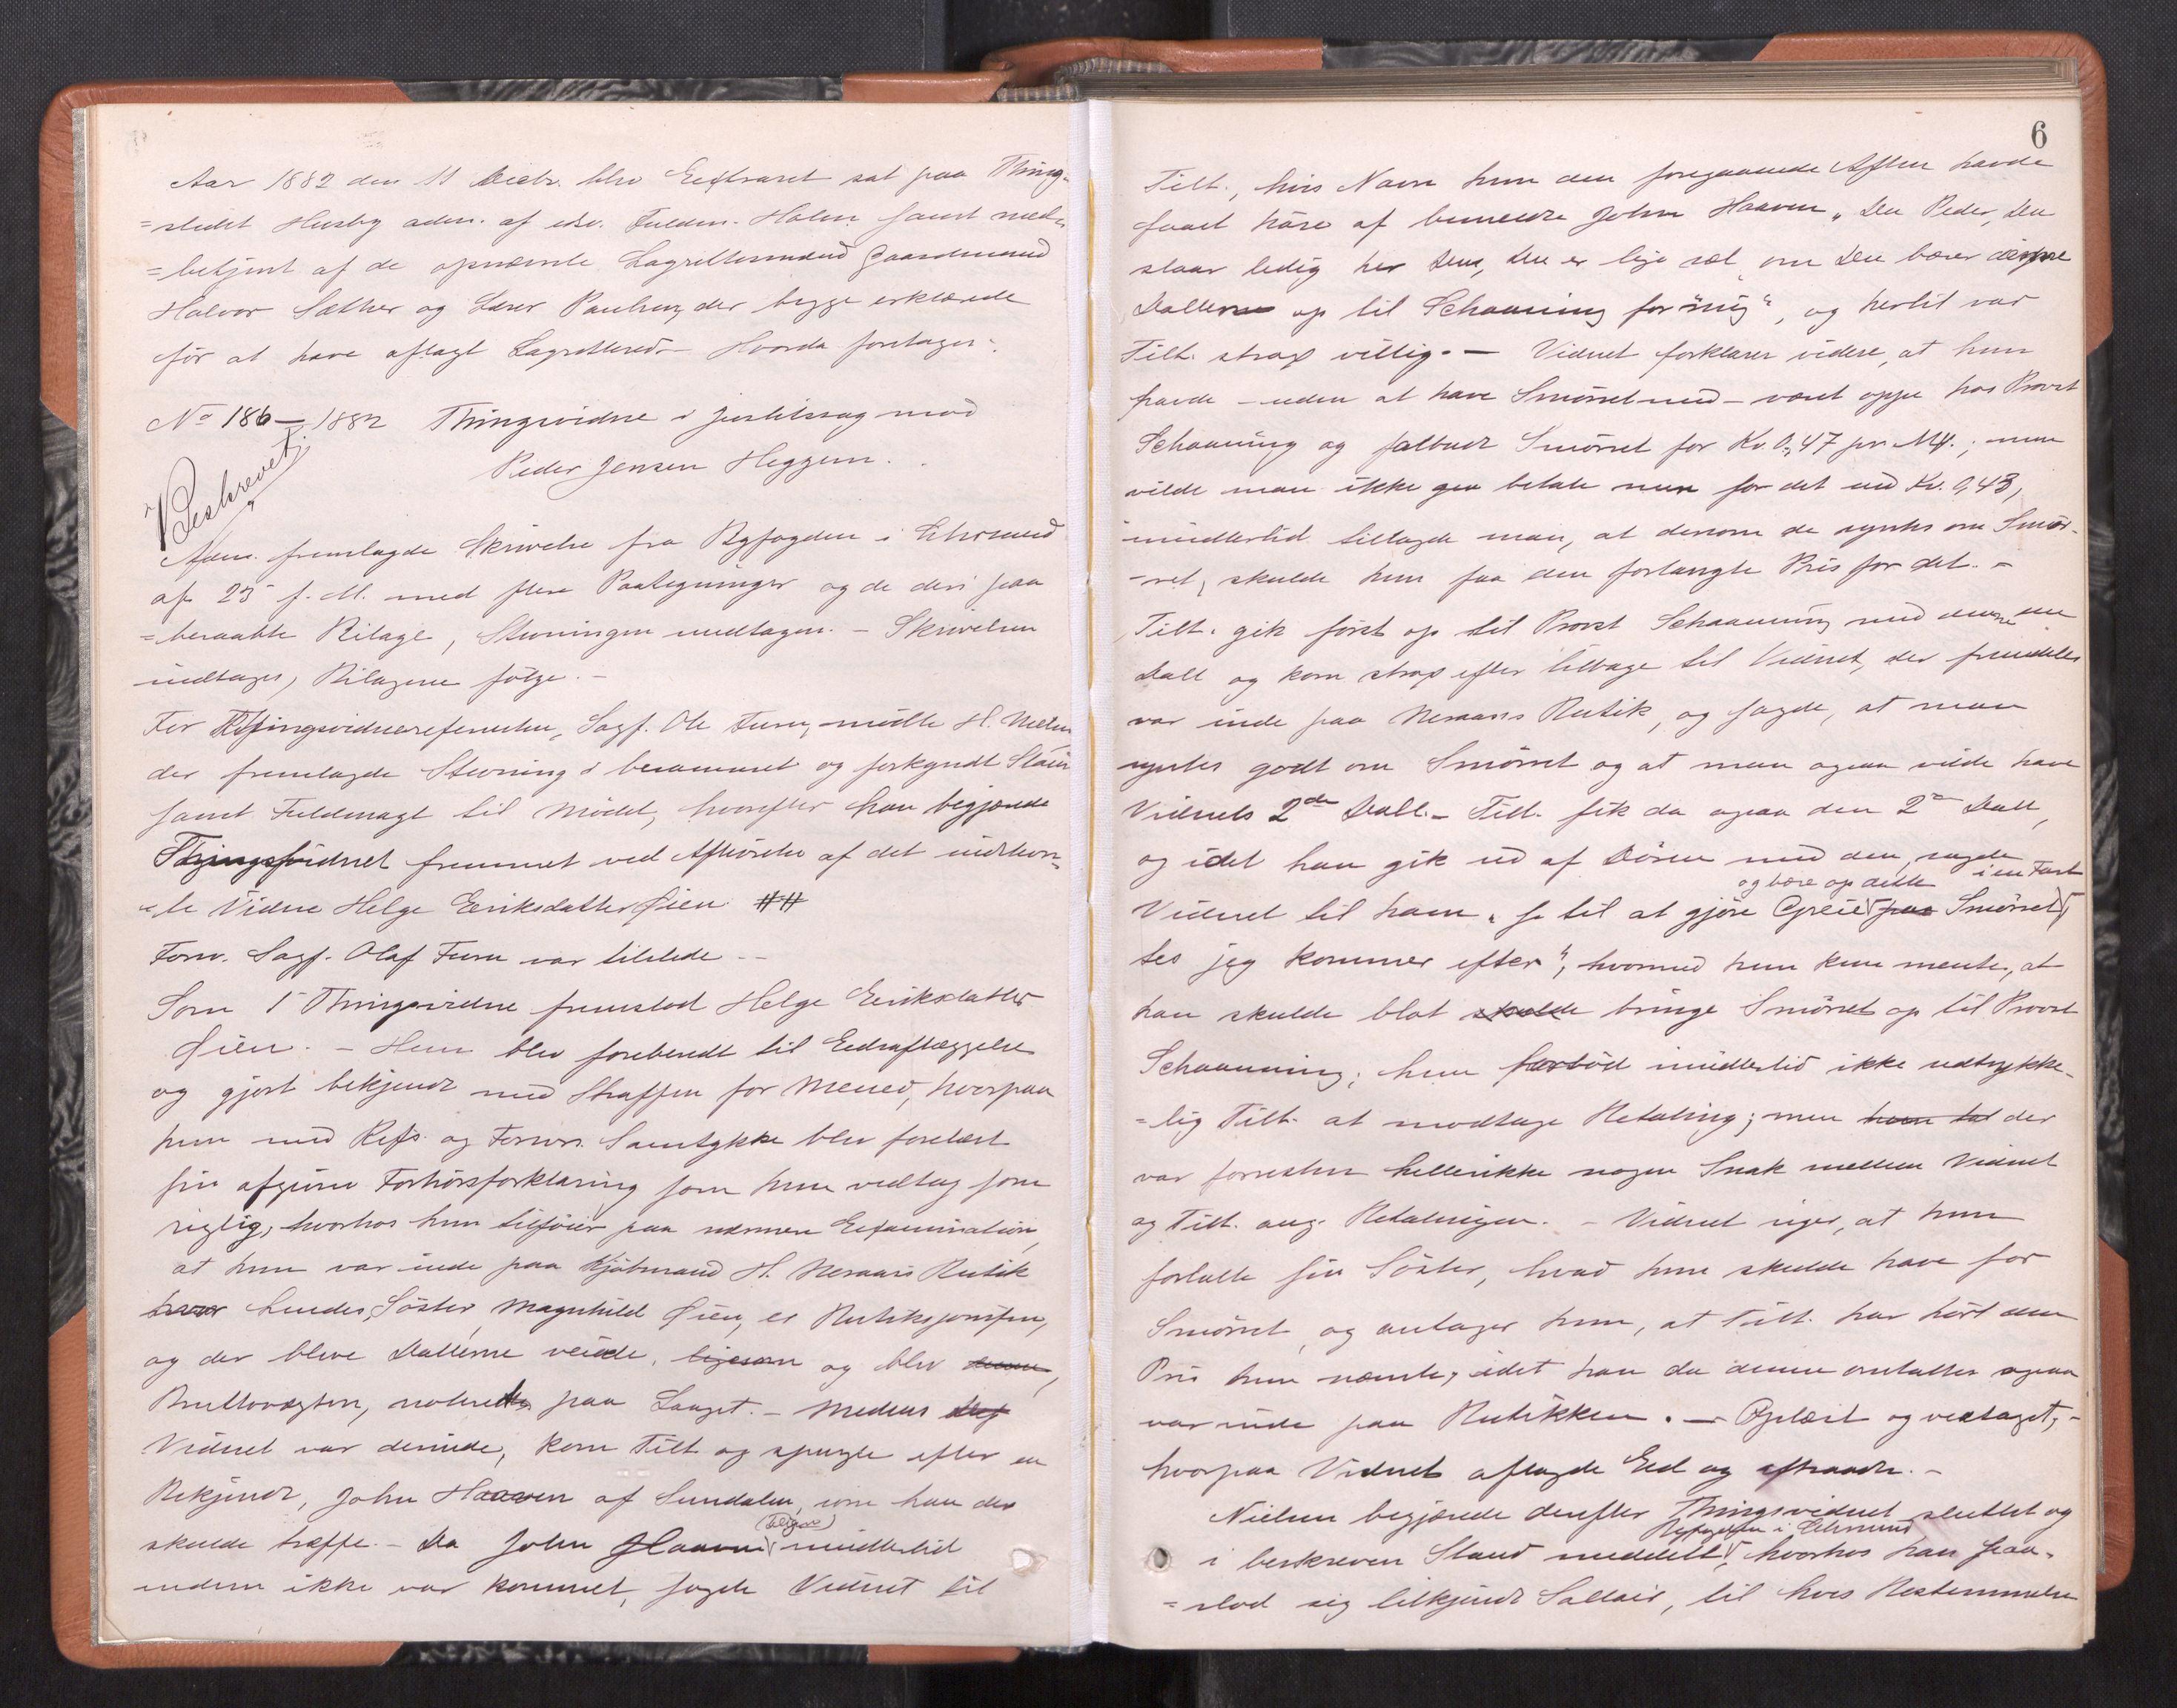 Aar 1882 den 11 Decbr. blev Extraret sat paa Thing-
=stedet Husby adm. af edsv. Fuldm. Holm samt med-
=betjent af de opnævnte Lagrettesmænd Gaardmænd
Halvor Sæther og Lars Paulsen, der begge erklærede
før at have aflagt Lagrettesed. – Hvorda foretages:
No 186 – 1882 Thingsvidne i Justitssag mod
Peder Jensen Heggem.
Beskrevet.
Adm. fremlagde Skrivelse fra Byfogden i Chrsund
af 25 f. M. med flere Paategninger og de deri paa
=beraabte Bilage, Stevningen undtagen. – Skrivelsen
indtages, Bilagene følge. –
For Thingsvidnereferenten, Sagf. Ole Furu, mødte H. Nielsen
der fremlagde Stevning i berammet og forkyndt Stand
samt Fuldmagt til Mødet, hvorefter han begjærede
Thingsvidnet fremmet ved Afhørelse af det indstevn-
=te Vidne Helge Eeriksdatter Øien. ##
Forsv. Sagf. Olaf Furu var tilstede –
Som 1 Thingsvidne fremstod Helge Eeriksdatter
Øien. – Hun blev foreberedt til Eedsaflæggelse
og gjort bekjendt med Straffen for Meneed, hvorpaa
hun med Refs. og Forsvs. Samtykke blev forelæst
sin afgivne Forhørsforklaring som hun vedtog som
rigtig, hvorhos hun tilføier paa nærmere Examination,
at hun var inde paa Kjøbmand H. Nesaars Butik
hvor hendes Søster, Magnhild Øien, er Butiksjomfru,
og der bleve Dallerne veiede, ligesom og blev
Bruttovægten, noteret paa Laaget. – Medens
Vidnet var derinde, kom Tilt og spurgte efter en
Bekjendt, John Haaven af Sundalen, som han der
skulde træffe. – Da John Haaven (Tiltalte) imidlertid
endnu ikke var kommet, sagde Vidnet til
6
Tilt., hvis Navn hun den foregaaende Aften havde
faaet høre af bemeldte John Haaven „Du Peder, Du
staar ledig her Du, Du er lige sæl om Du bærer disse
Dallerne op til Schaanning for mig“, og hertil var
Tilt. strax villig. – Vidnet forklarer videre, at hun
havde – uden at have Smørret med – været oppe hos Provst
Schaanning og falbudt Smørret for Kr. 0,47 pr. Mk.; men
vilde man ikke gaa betale mere for det end Kr. 0,43,
imidlertid tillagde man, at dersom de syntes om Smør-
-ret, skulde hun faa den forlangte Pris for det. –
Tilt. gik først op til Provst Schaanning med den ene
Dall og kom strax efter tilbage til Vidnet, der fremdeles
var inde paa Nesaars Butik, og sagde, at man
syntes godt om Smørret og at man ogsaa vilde have
Vidnets 2den Dall. – Tilt. fik da ogsaa den 2den Dall,
og idet han gik ud af Døren med den, sagde
Vidnet til ham „se til at gjøre Greie og bære op dette paa Smørret i en Fart
tes jeg kommer efter“, hvormed hun kun mente, at
han skulde blot skulde bringe Smørret op til Provst
Schaanning; hun forbød imidlertid ikke udtrykke-
=lig Tilt. at modtage Betaling; men hun lod der
var forresten hellerikke nogen Snak mellem Vidnet
og Tilt. ang. Betalingen. – Vidnet siger, at hun
fortalte sin Søster, hvad hun skulde have for
Smørret, og antager hun, at Tilt. har hørt den
Pris hun nævnte, idet han da denne omtaltes ogsaa
var inde paa Butikken. – Oplæst og vedtaget,
hvorpaa Vidnet aflagde Eed og aftraadte. –
Nielsen begjærede derefter Thingsvidnet sluttet og
i beskreven Stand meddelt Byfogden i Chrsund, hvorhos han paa-
=stod sig tilkjendt Sallair, til hvis Bestemmelse